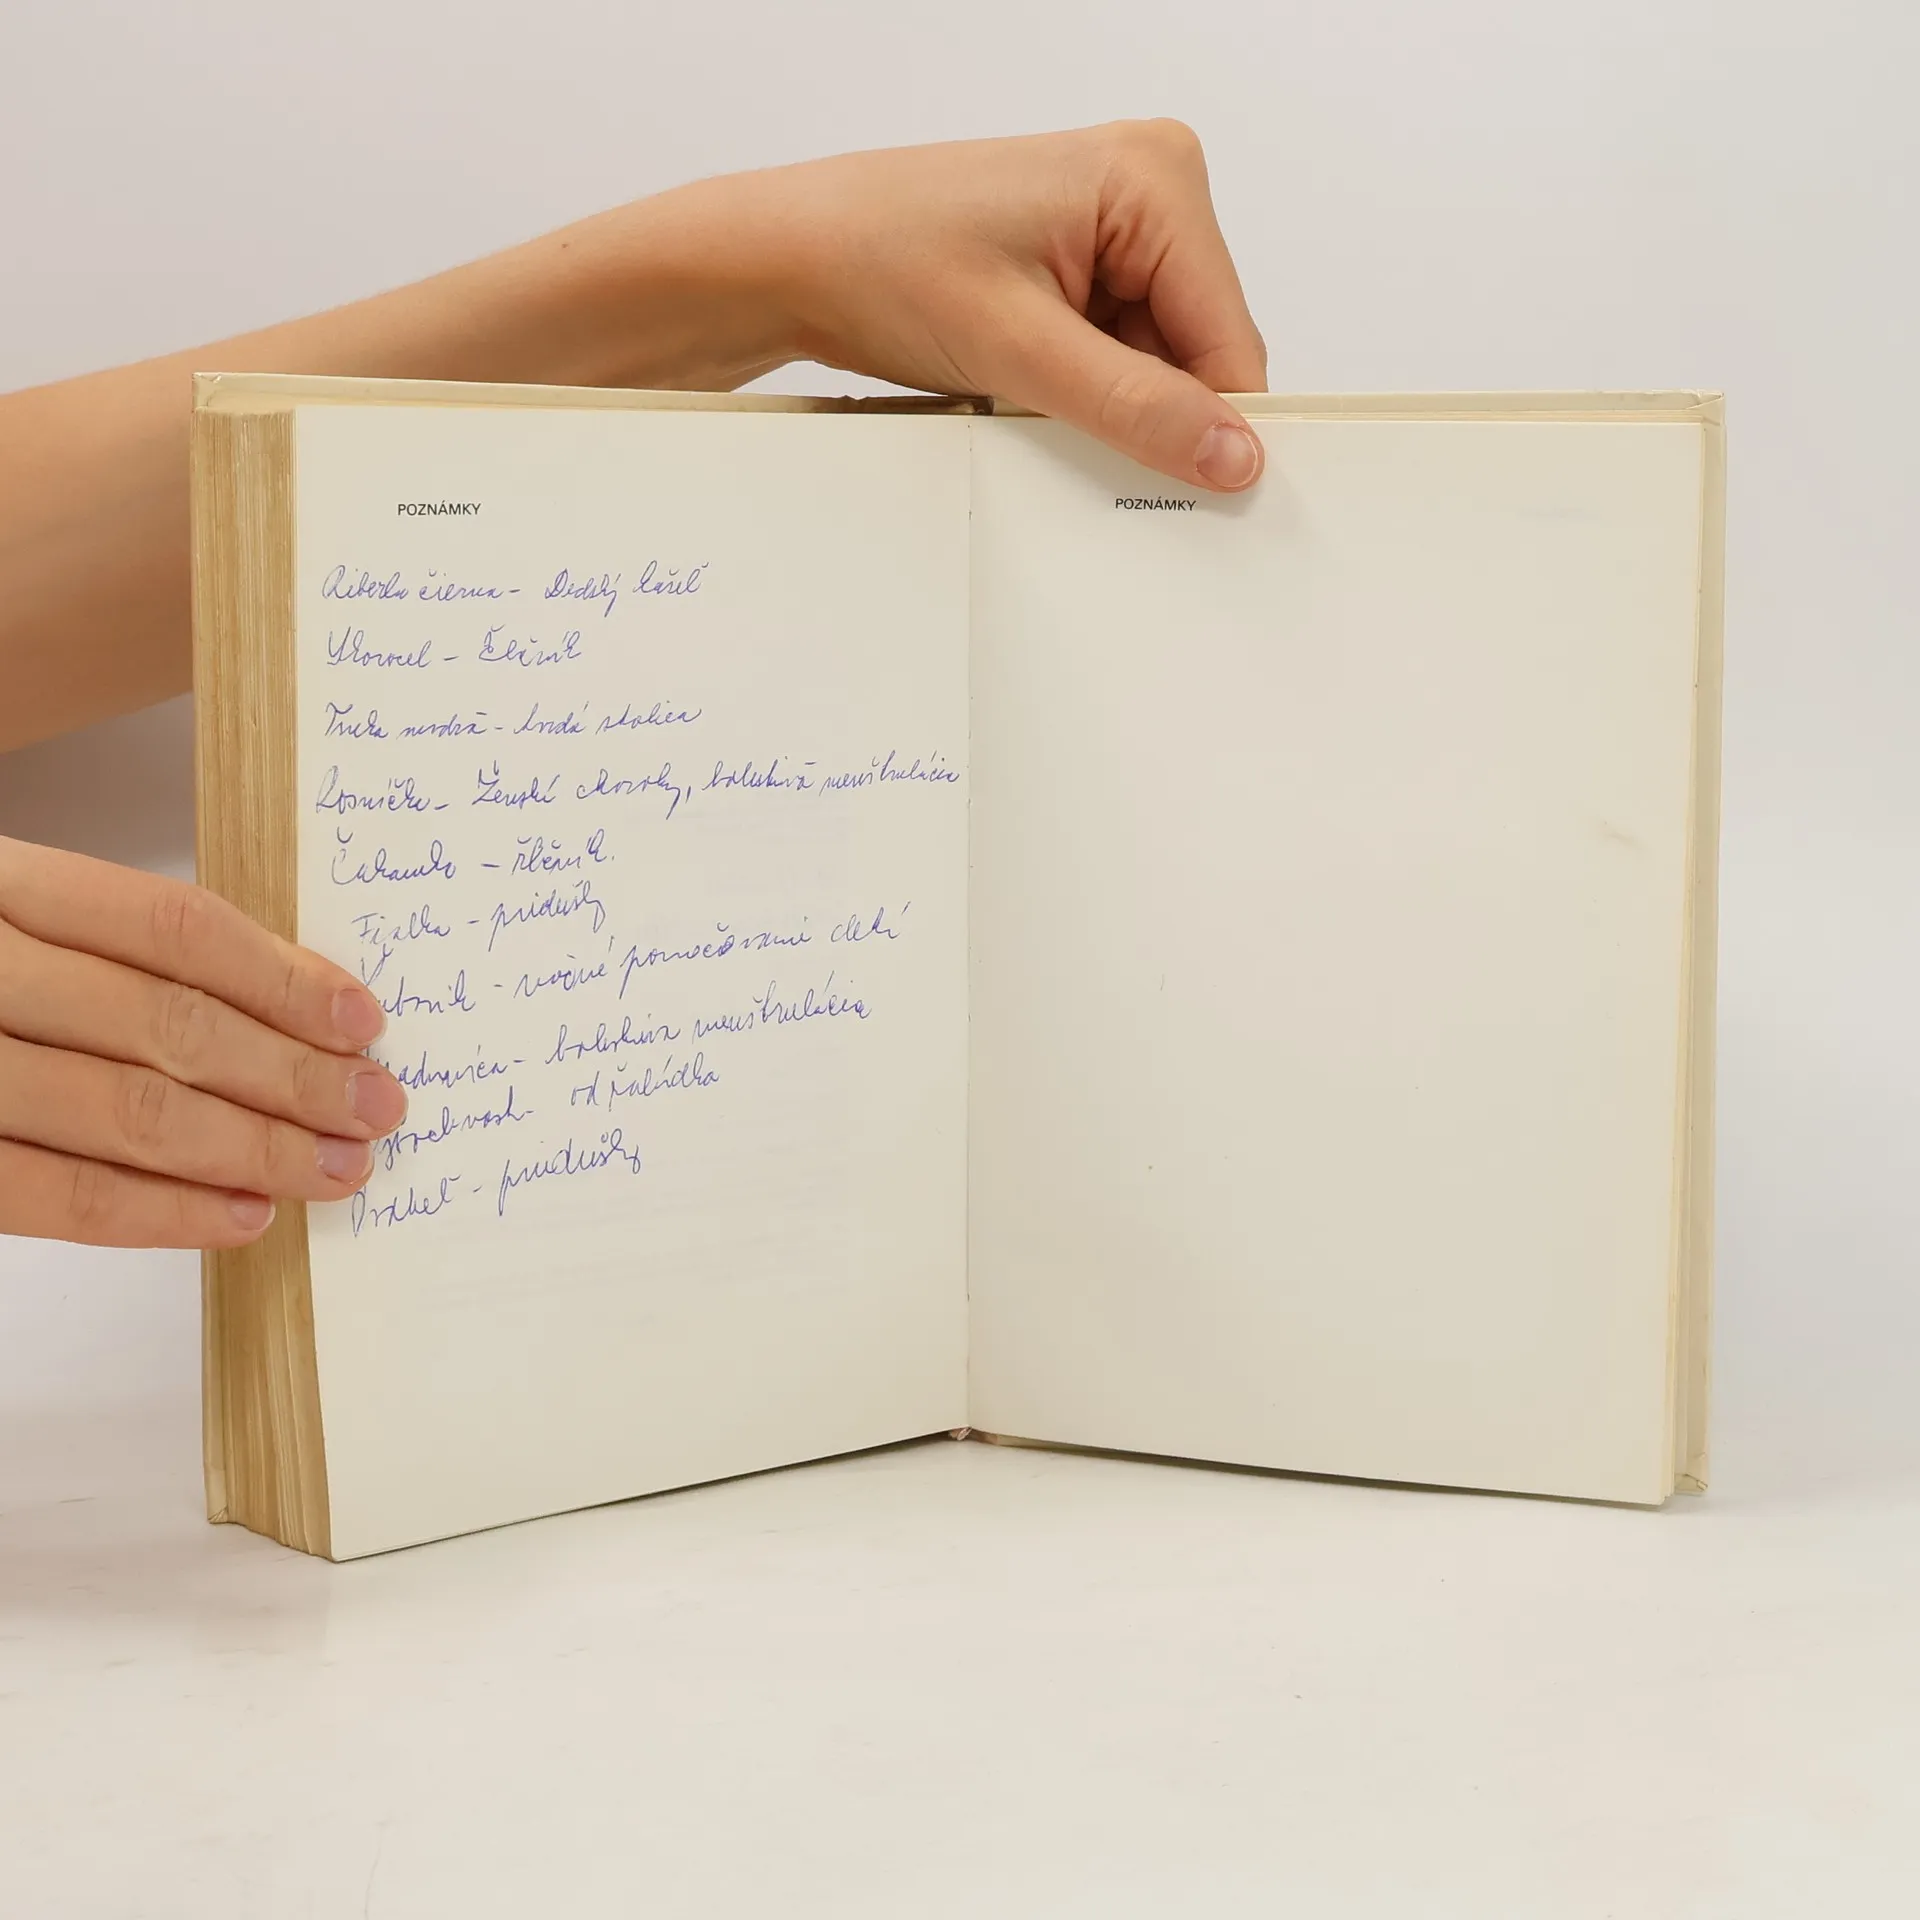 POZNÁMKY
Ribezla čierna - Dedský kašeľ
Skorocel - Žlčník
Tvrdá stolica
Rosnička - Ženské choroby, bolestivá menštrulácia
Čakanka - žlčník.
Fialka - priedušky
nočné pomočovanie detí
bolestivá menštrulácia
od žalúdka
Praheľ - priedušky
POZNÁMKY